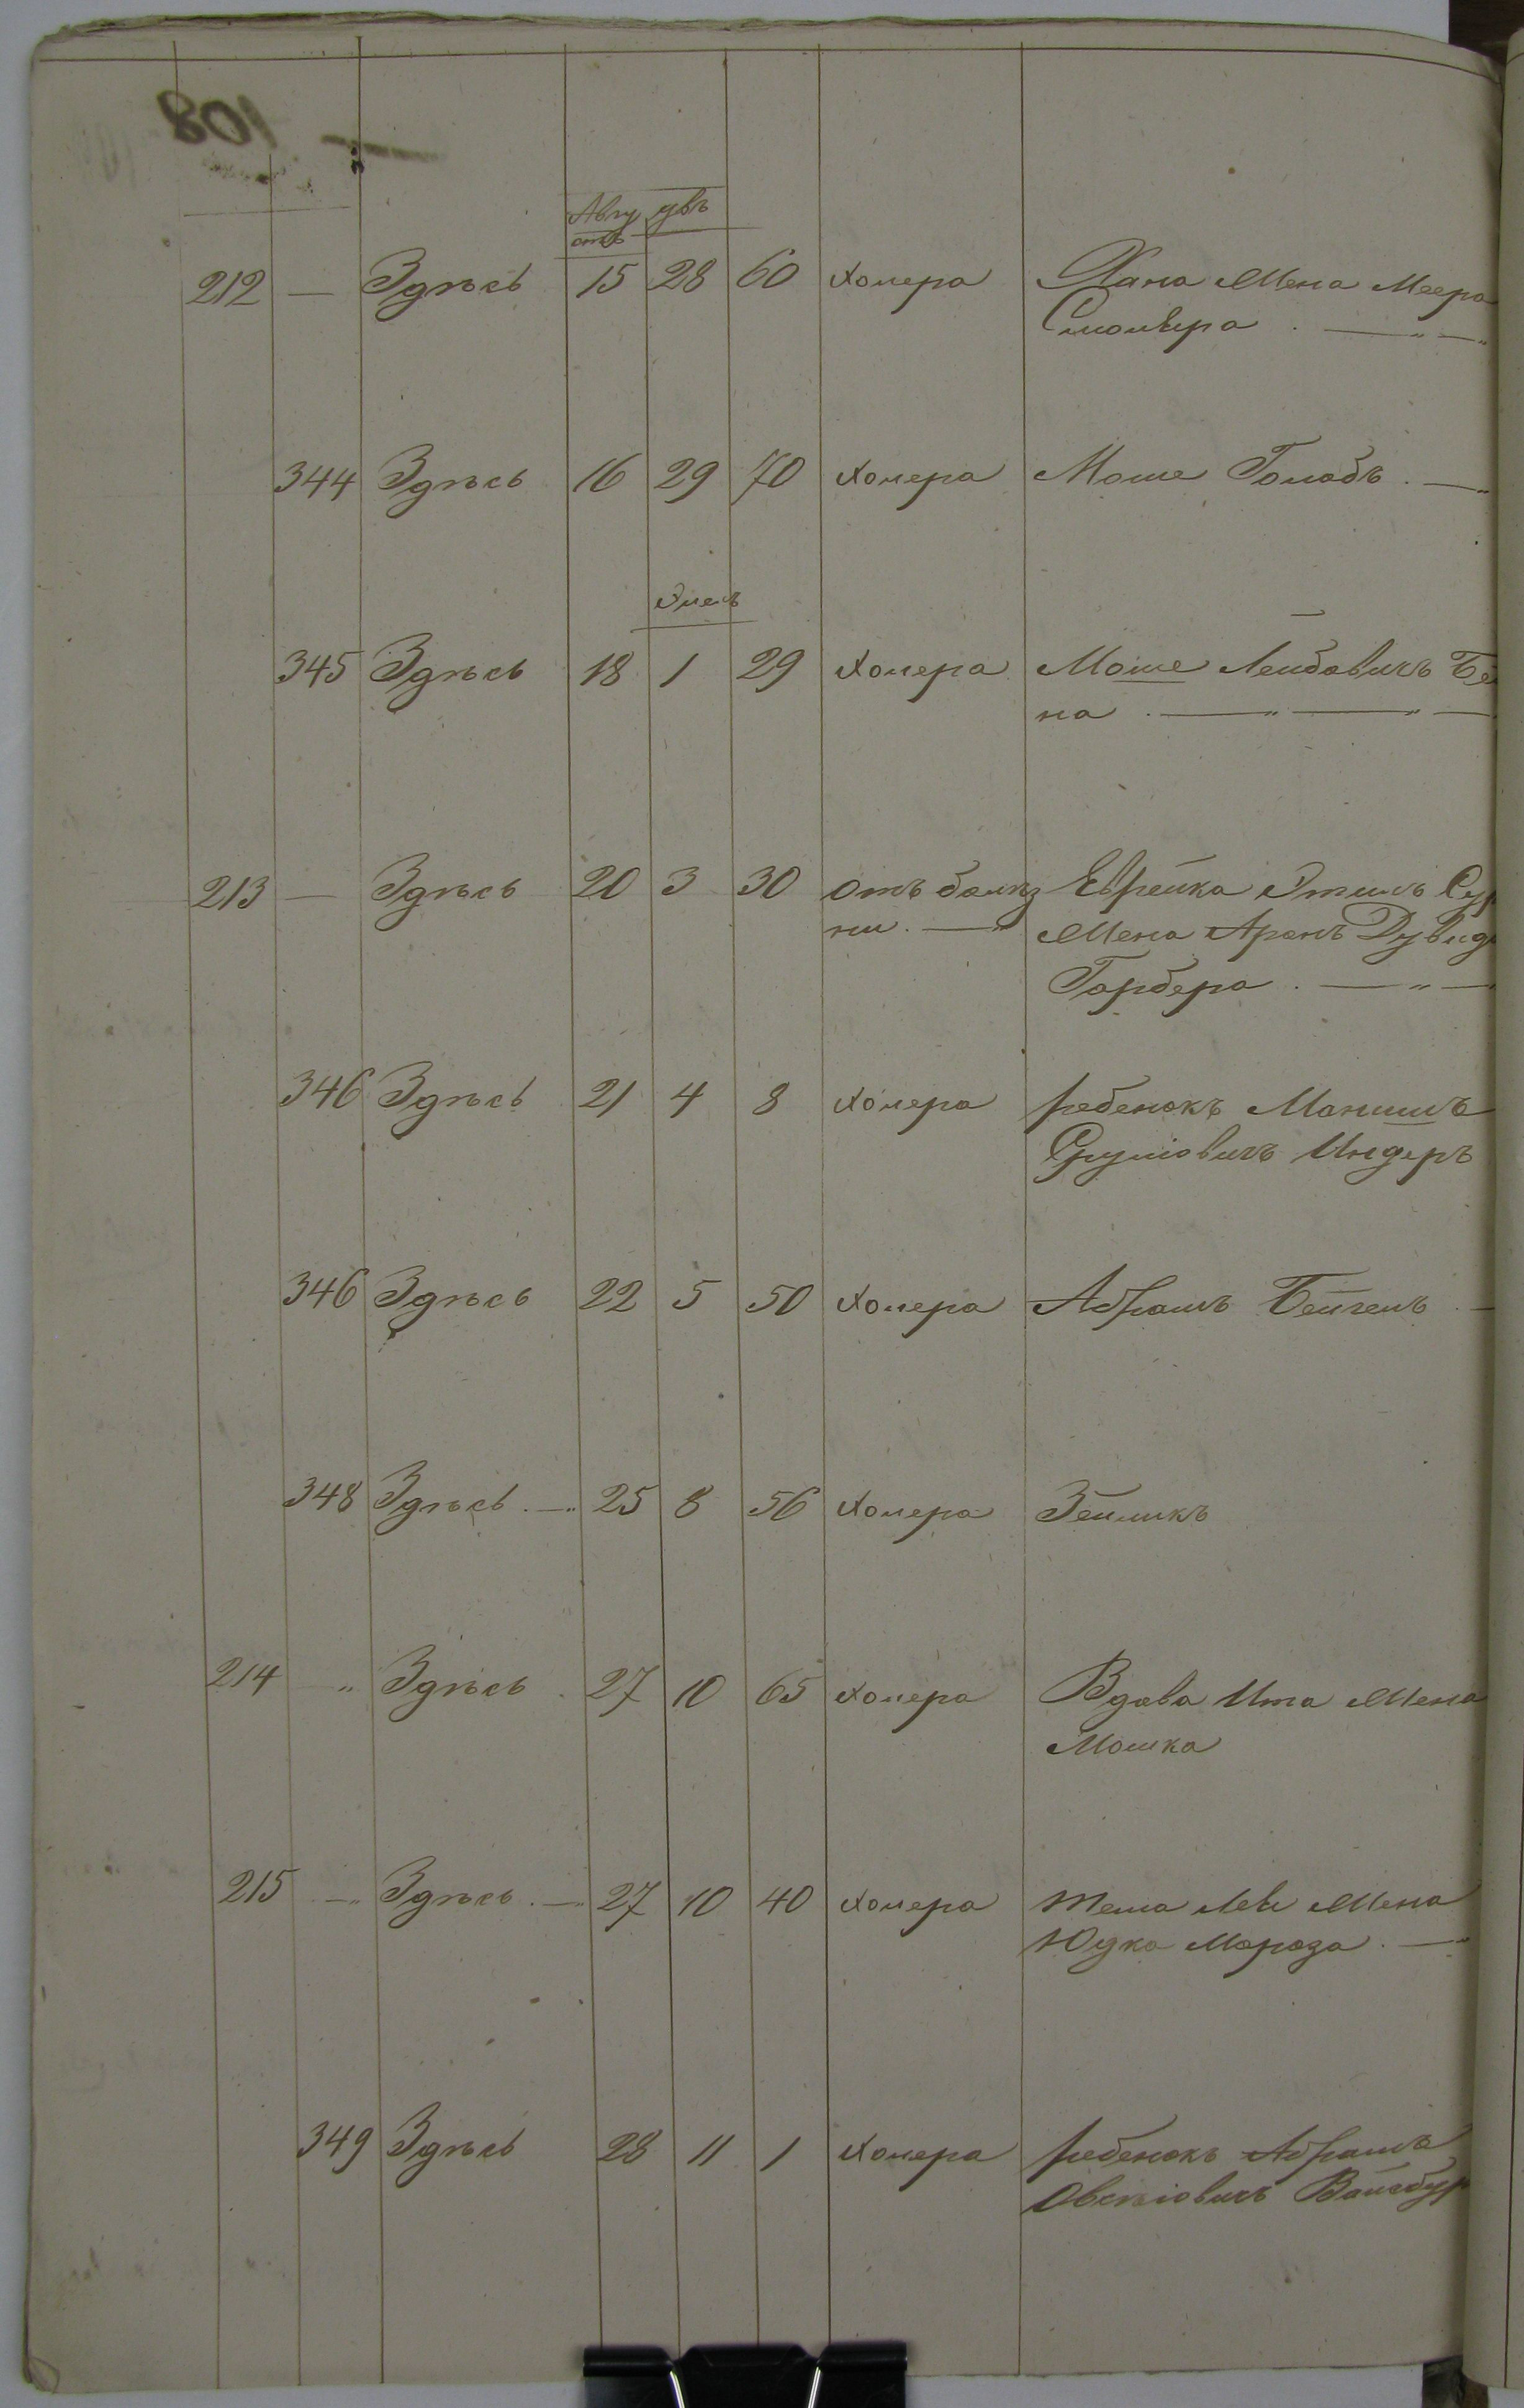 108
Авгу устъ
авъ
212 — Здѣсь 15 28 60 холера Хана Жена Меера
Смоляра
344 Здѣсь 16 29 70 холера Моше Голобъ
Элелъ
345 Здѣсь 18 1 29 холера Моше Лейбовичъ
на
213 — Здѣсь 20 3 30 отъ болѣз Еврейка Этиль Сур
ни Жена Аронъ Дувид
Гарбера
346 Здѣсь 21 4 8 холера ребенокъ Манишъ
Сруліовичъ Индеръ
346 Здѣсь 22 5 50 холера Абрамъ
348 Здѣсь 25 8 56 холера Зейликъ
214 „ Здѣсь 27 10 65 холера Вдова Ита Жена
Мошка
215 — Здѣсь 27 10 40 холера Жена
Юдка Мороза
349 Здѣсь 28 11 1 холера ребенокъ Абрамъ
Овсѣіовичъ Вайсбур